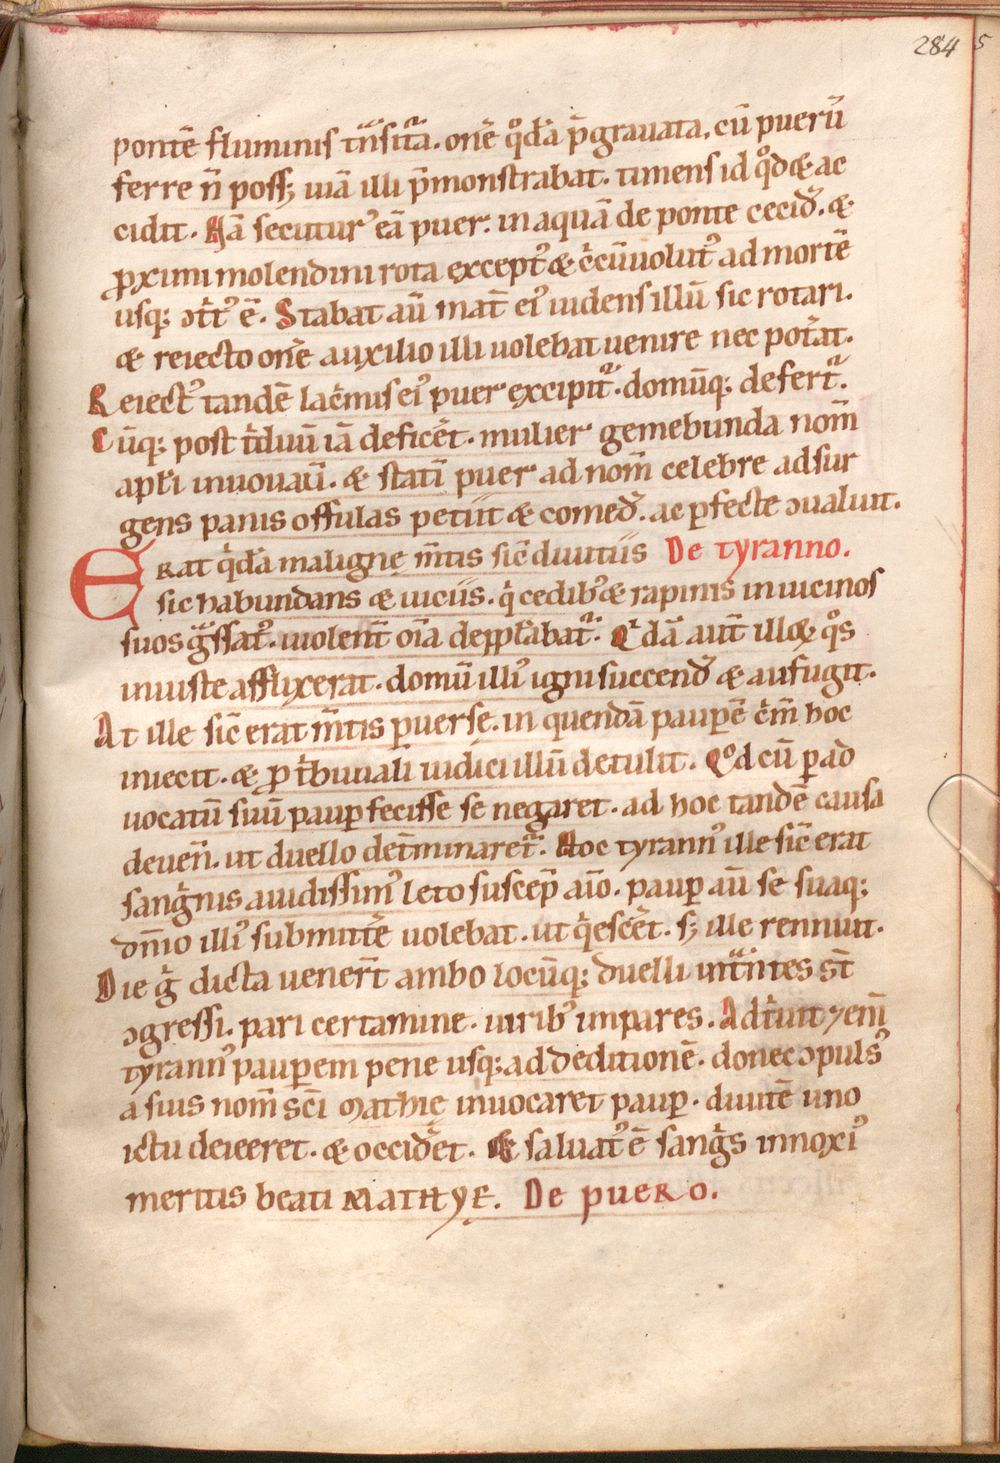 284 5
pontē fluminis tn̄sitᷓa. onē qͦdā p̄grauata, cū puerū
ferre n̄ poss; uiā illi p̄monstrabat. timens id qͦd & ac
cidit. Nā secutur᾿ eā puer. in aquā de ponte cecid̄. &
ꝓximi molendini rota except᾿ & c̄cūuolut᾿ ad mortē
usq; ↄtͥt᾿ ē. Stabat aū mat̄ ei᾿ uidens illū sic rotari.
& reiecto onē auxilio illi uolebat uenire nec pot̄at.
Reiect᾿ tandē lac̄mis ei᾿ puer excipitᷓ. domūq; defertᷓ.
Cūq; post tͥduū iā deficēt. mulier gemebunda nom̄
apłi inuouaū. & statī puer ad nom̄ celebre adsur
gens panis offulas petiit & comed̄. ac ꝑfecte ↄualuit.
Erat qͥdā malignę m̄tis sic̄ diuitiis De tyranno.
sic habundans & uiciis. qͥ cedib᾿ & rapinis in uicinos
suos gᷓssat᾿. uiolent̄ oīa depp̄dabatᷓ. Qͥdā aut̄ illoꝝ qͦs
iniuste afflixerat. domū illi᾿ igni succend̄ & aufugit.
At ille sic̄ erat m̄tis ꝑuerse. in quendā pauꝑē c̄m̄ hoc
iniecit. & ꝓ tͥbunali iudici illū detulit. Qͦd cū ꝑ ad
uocatū suū pauꝑ fecisse se negaret. ad hoc tandē causa
deuen̄. ut duello det̄minaretᷓ. Hoc tyrann᾿ ille sic̄ erat
sangͥnis auidissim᾿ leto suscep̄ aīo. pauꝑ aū se suaq;
dn̄io illi᾿ submitt̄e uolebat. ut qͥesc̄et. s; ille rennuit.
Die gͥ dicta uener̄t ambo locūq; duelli int̄ntes st̄
ↄgressi. pari certamine. uirib᾿ impares. Adtͥuit 7 eni̅
tyrann᾿ pauꝑem pene usq; ad deditionē. donec ↄpuls᾿
a suis nom̄ sc̄i mathię inuocaret pauꝑ. diuitē uno
ictu deieeret. & occid̄et. & saluat᾿ ē sangͥs innoxi᾿
meritis beati MATHYE. De puero.